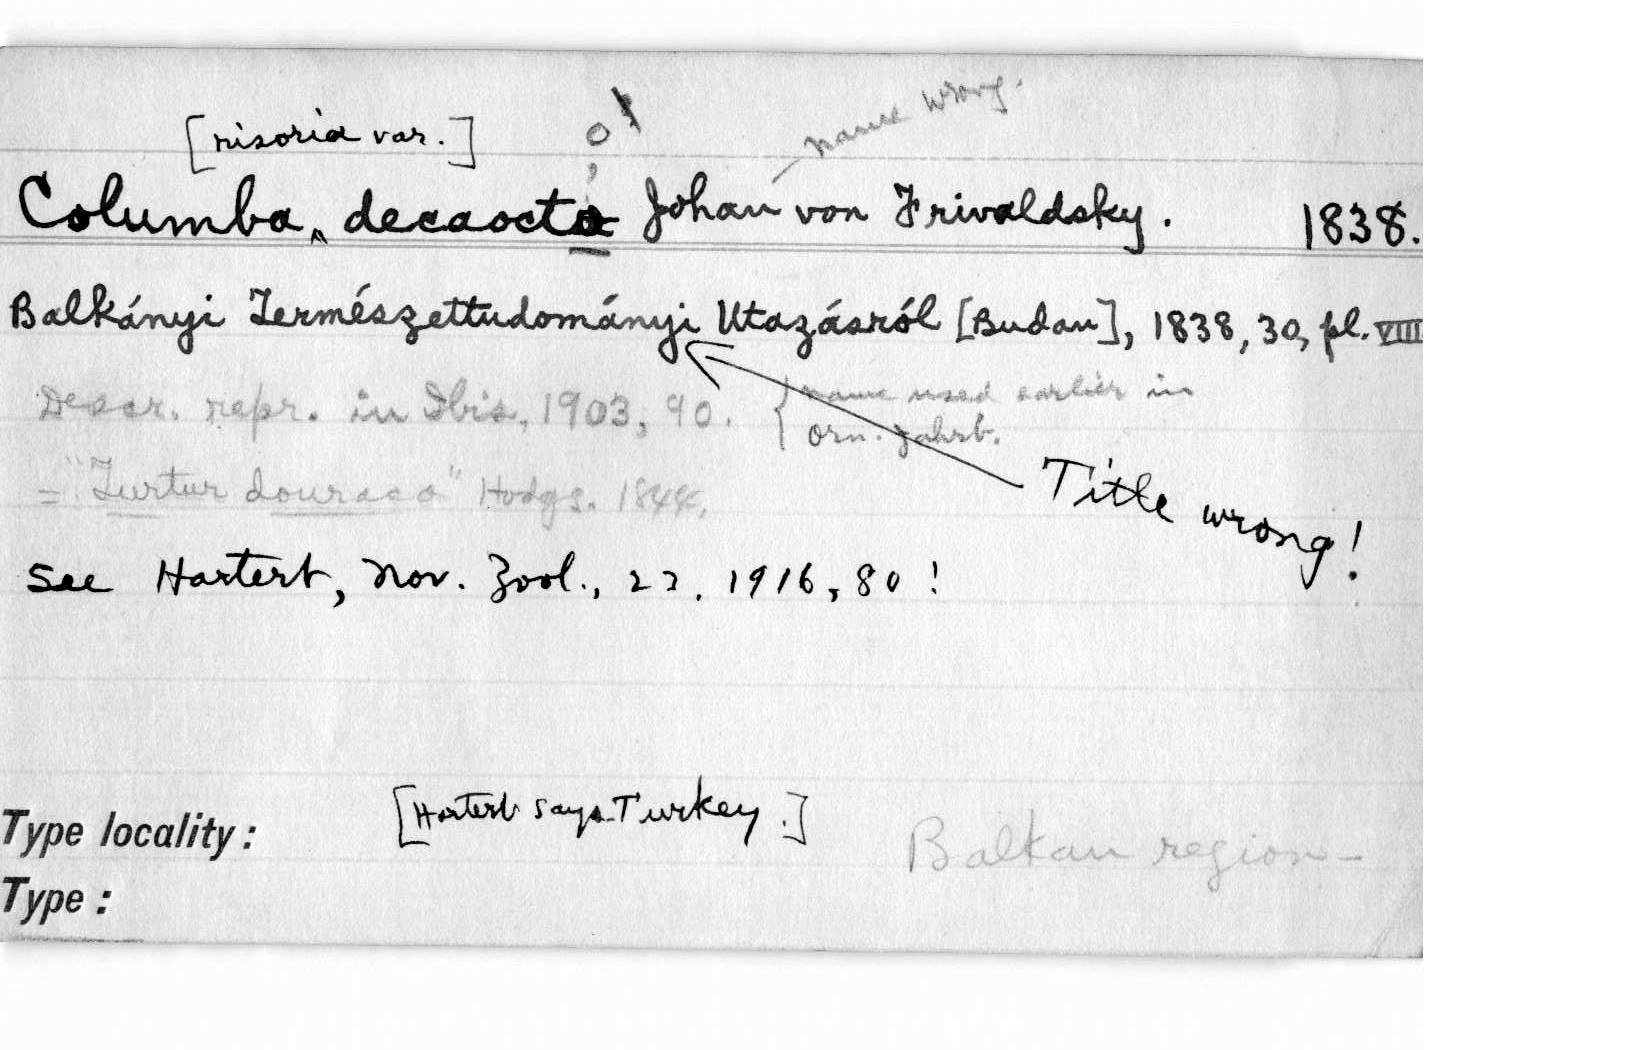 name wrong.
[risoria var.] o!
Columba decaocto Johan von Frivaldsky. 1838.
Balkányi Természettudományi Utazásról [Budau], 1838, 30, pl. VIII
Descr. repr. in Ibis, 1903, 90. { name used earlier in
Orn. Jahrb.
= "Turtur douraca" Hodgs. 1844.
Title wrong!
See Hartert, Nov. Zool., 23, 1916, 80!
Type locality: [Hartert says Turkey.] Balkan region-
Type: